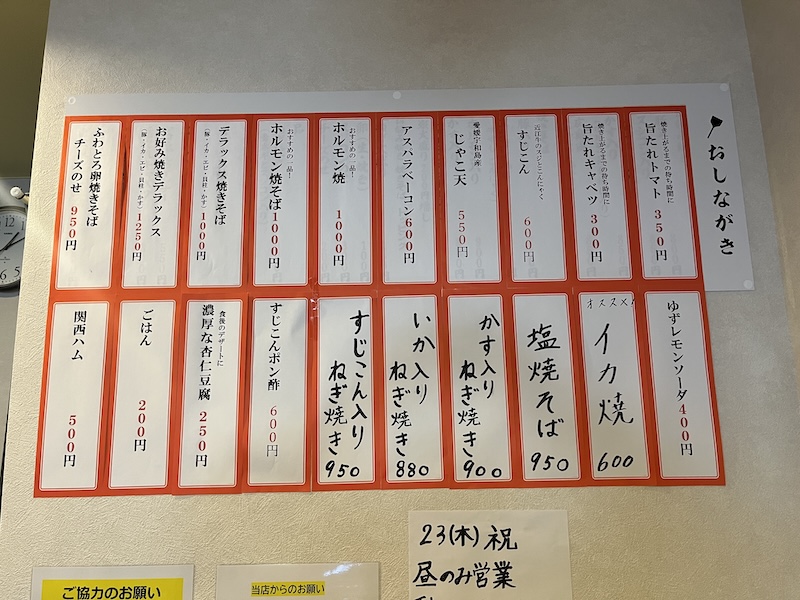 おしながき
焼き上がるまでの待ち時間に
旨たれトマト 350円
焼き上がるまでの待ち時間に
旨たれキャベツ 300円
近江牛のスジとこんにゃく
すじこん 600円
愛媛宇和島産
じゃこ天 550円
アスパラベーコン 600円
おすすめの一品!
ホルモン焼 1000円
おすすめの一品!
ホルモン焼そば 1000円
デラックス焼きそば
(豚・イカ・エビ・貝柱・かす) 1000円
お好み焼きデラックス
(豚・イカ・エビ・貝柱・かす) 1250円
ふわとろ卵焼きそば
チーズのせ 950円
ゆずレモンソーダ 400円
オススメ!
イカ焼 600
塩焼そば 950
かす入り
ねぎ焼き 900
いか入り
ねぎ焼き 880
すじこん入り
ねぎ焼き 950
すじこんポン酢 600円
食後のデザートに
濃厚な杏仁豆腐 250円
ごはん 200円
関西ハム 500円
12
1
2
3
4
5
23(木)祝
昼のみ営業
ご協力のお願い
当店からのお願い